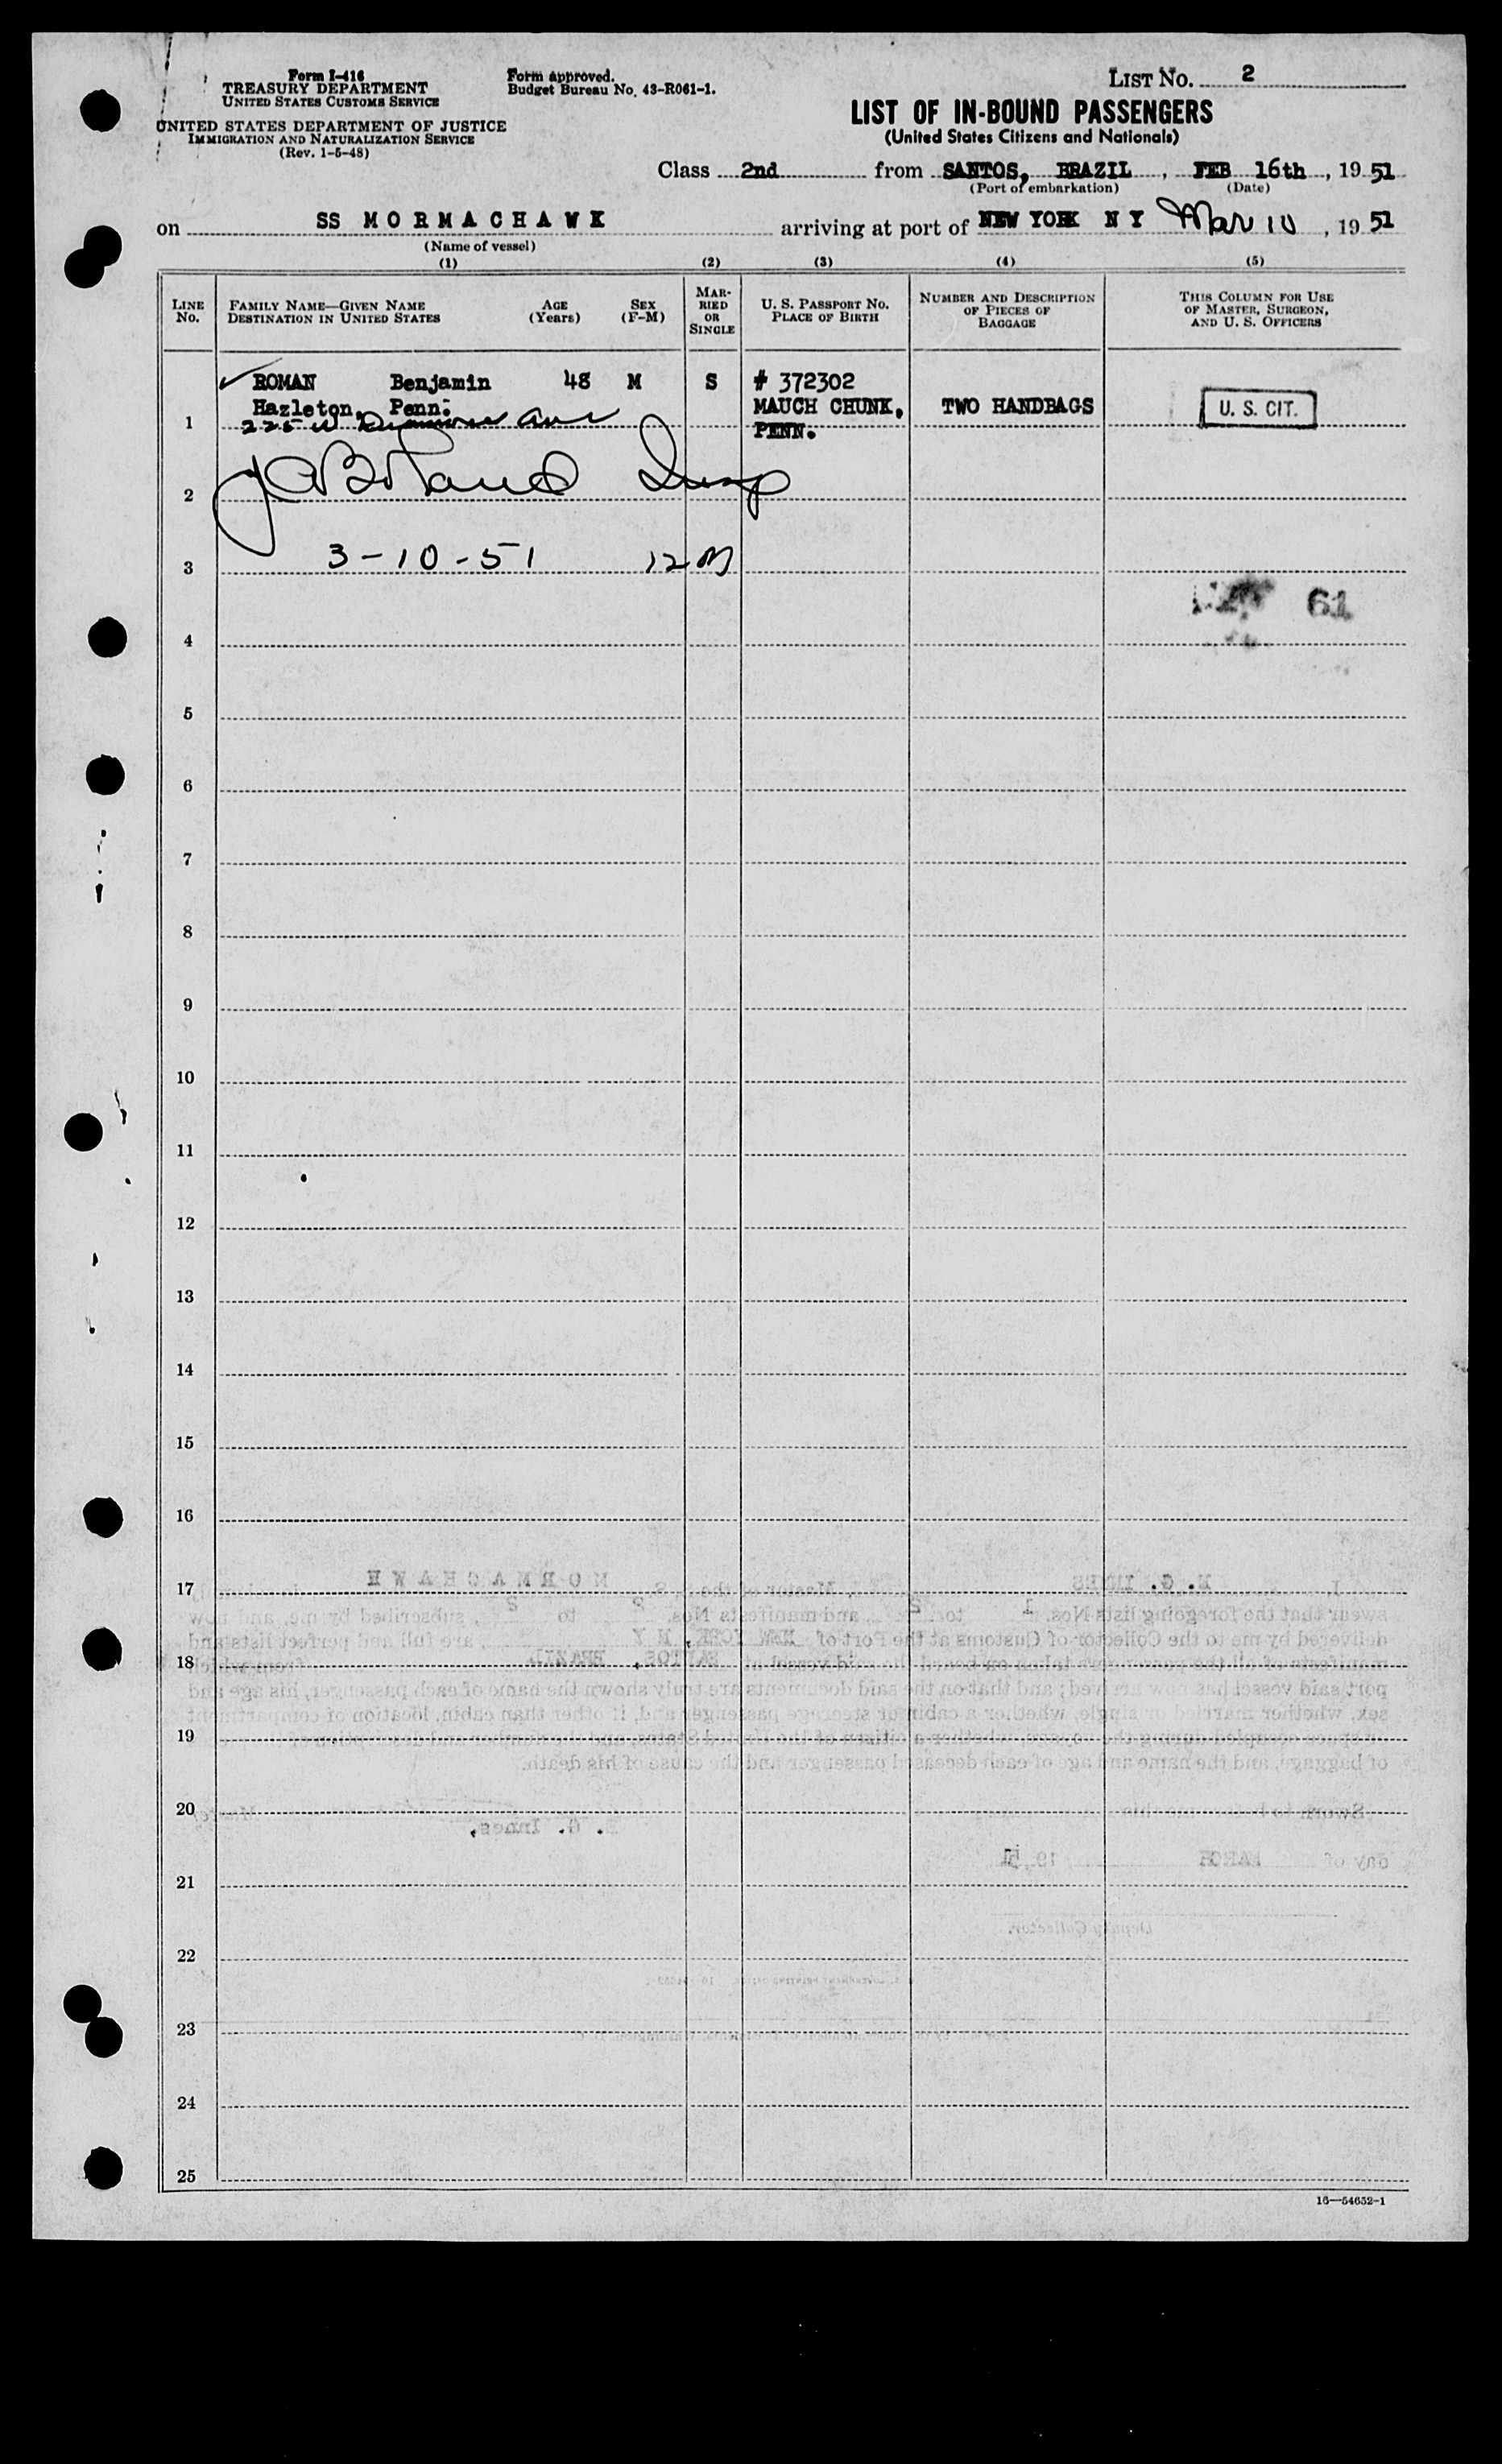 Form I-416
TREASURY DEPARTMENT
UNITED STATES CUSTOMS SERVICE
UNITED STATES DEPARTMENT OF JUSTICE
IMMIGRATION AND NATURALIZATION SERVICE
(Rev. 1-5-48)
Form approved.
Budget Bureau No. 43-R061-1.
LIST NO. 2
LIST OF IN-BOUND PASSENGERS
(United States Citizens and Nationals)
Class 2nd from SANTOS, BRAZIL, FEB 16th, 1951
(Port of embarkation) (Date)
on SS MORMACHAWK arriving at port of NEW YORK N Y Mar 10, 1951
(Name of vessel)
(1) (2) (3) (4) (5)
LINE NO.
FAMILY NAME—GIVEN NAME AGE SEX
DESTINATION IN UNITED STATES (Years) (F-M)
MAR-
RIED
OR
SINGLE
U. S. PASSPORT NO.
PLACE OF BIRTH
NUMBER AND DESCRIPTION
OF PIECES OF
BAGGAGE
THIS COLUMN FOR USE
OF MASTER, SURGEON,
AND U. S. OFFICERS
ROMAN Benjamin 48 M S # 372302
Hazleton, Penn. MAUCH CHUNK, TWO HANDBAGS U. S. CIT.
1 225 W Ave PENN.
2
3 3-10-51 12 M
61
4
5
6
7
8
9
10
11
12
13
14
15
16
17
18
19
20
21
22
23
24
25
16—54652-1